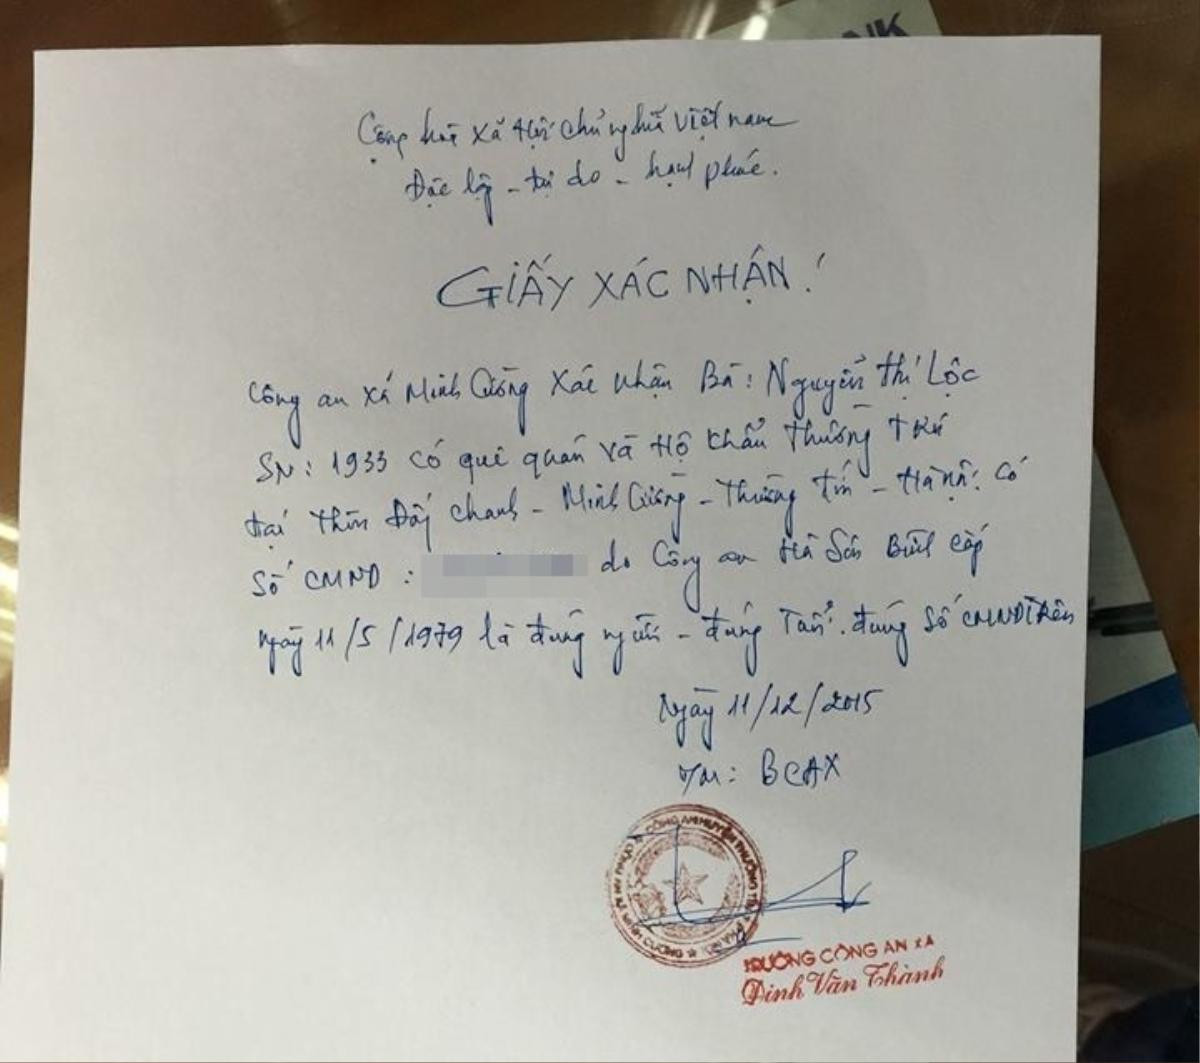 NK
Cộng hòa xã Hội chủ nghĩa việt nam
Độc lập - tự do - hạnh phúc.
GIẤY XÁC NHẬN!
Công an xã Minh Cường xác nhận Bà: Nguyễn thị Lộc
SN: 1933 có quê quán và Hộ khẩu thường trú
tại thôn Đống chanh - Minh Cường - Thường tín - Hà nội. Có
Số CMND : do Công an Hà Sơn Bình cấp
ngày 11/5/1979 là đúng người - đúng Tên. đúng Số CMND trên
Ngày 11/12/2015
T/M: BCAX
CÔNG AN HUYỆN THƯỜNG TÍN
MINH CƯỜNG
TRƯỞNG CÔNG AN XÃ
Đinh Văn Thành